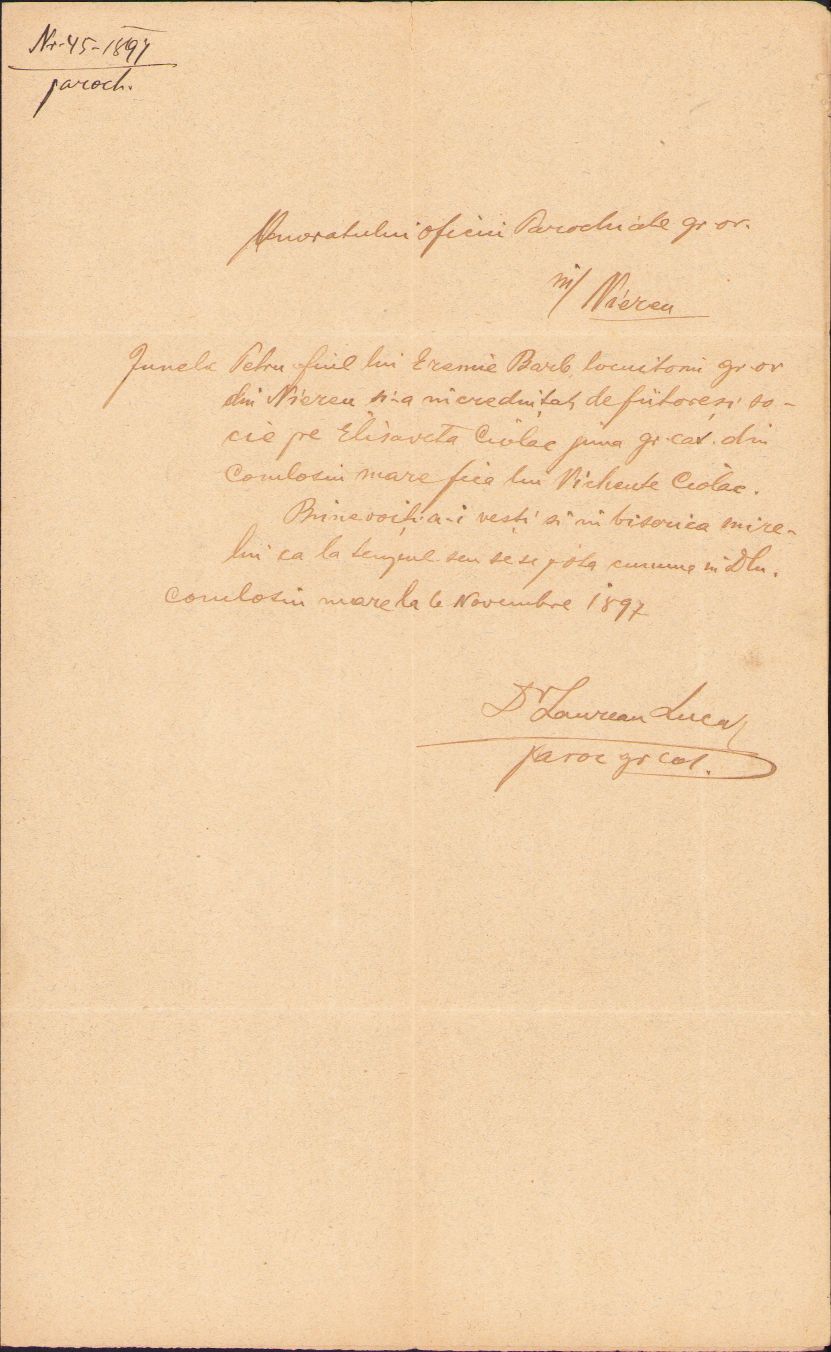 Nr. 45-1897
paroch.
Onoratului oficiu Parochiale gr. or.
in/ Niereu
Junele Petru fiul lui Eremie Barb, locuitoriu gr. or
din Niereu si-a incredintat de fiitore si so-
cie pe Elisaveta Ciolac juna gr. cat. din
Comlosiu mare fiea lui Vichente Ciolac.
Binevoiti a-i vesti si in biserica mire-
lui ca la tempul seu se se pota cununa in Dlu.
Comlosiu mare la 6 Novembre 1897
Dr Laurean Luca
paroc gr cat.